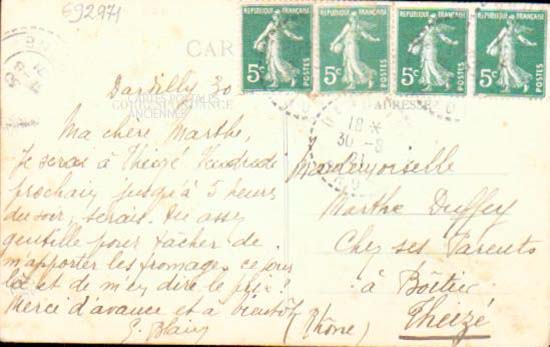 692971
CAR
RÉPUBLIQUE FRANÇAISE
5c POSTES
RÉPUBLIQUE FRANÇAISE
5c POSTES
RÉPUBLIQUE FRANÇAISE
5c POSTES
RÉPUBLIQUE FRANÇAISE
5c POSTES
18 *
30 - 8
21
CORRESPONDANCE
CARTES POSTALES
ANCIENNES
ADRESSE
Dardilly 30
Ma chère Marthe,
Je serai à Theizé Vendredi
prochain jusqu'à 5 heures
du soir, serais tu assez
gentille pour tâcher de
m'apporter les fromages ce jour
là et de m'en dire le prix?
Merci d'avance et à bientôt
Mademoiselle
Marthe Duffey
Chez ses Parents
à Boîtier
Theizé
(Rhône)